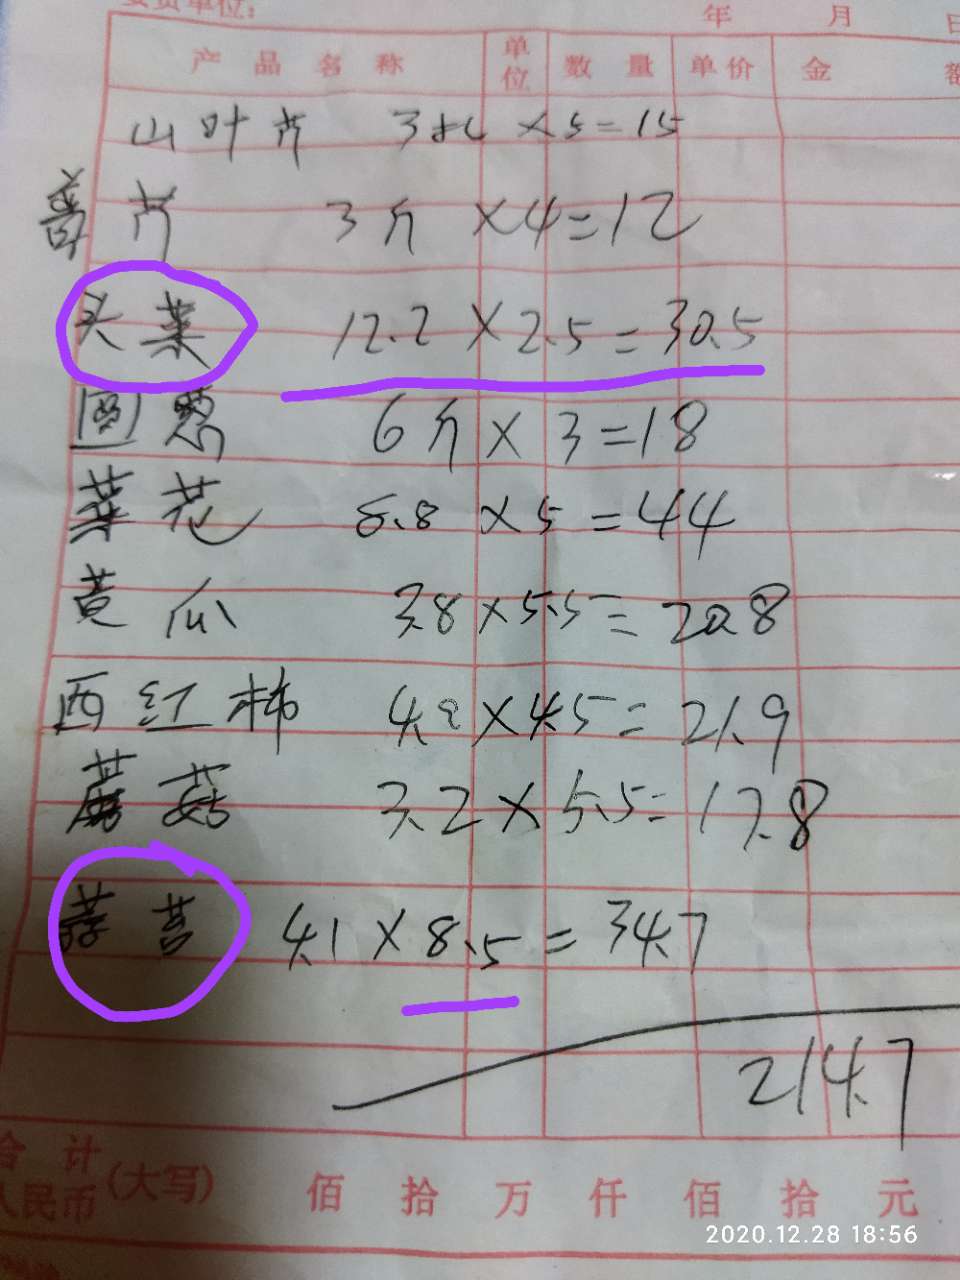 年 月 日
产品名称 单位 数量 单价 金 额
山叶芹 3 ×5=15
芹 3斤 ×4=12
头菜 12.2 ×2.5=30.5
圆葱 6斤 × 3=18
菜花 8.8 ×5=44
黄瓜 3.8×5.5=20.8
西红柿 4.8×4.5=21.9
蘑菇 3.2×5.5=17.8
4.1×8.5=34.7
214.7
合计
人民币 (大写) 佰 拾 万 仟 佰 拾 元
2020.12.28 18:56